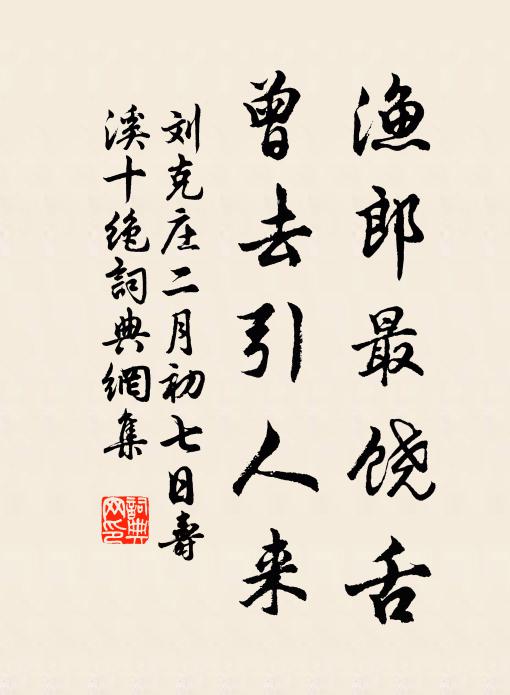 渔郎最饶舌
曾去引人来
刘克庄二月初七日寿
溪十绝詞典網集
詞典
网印